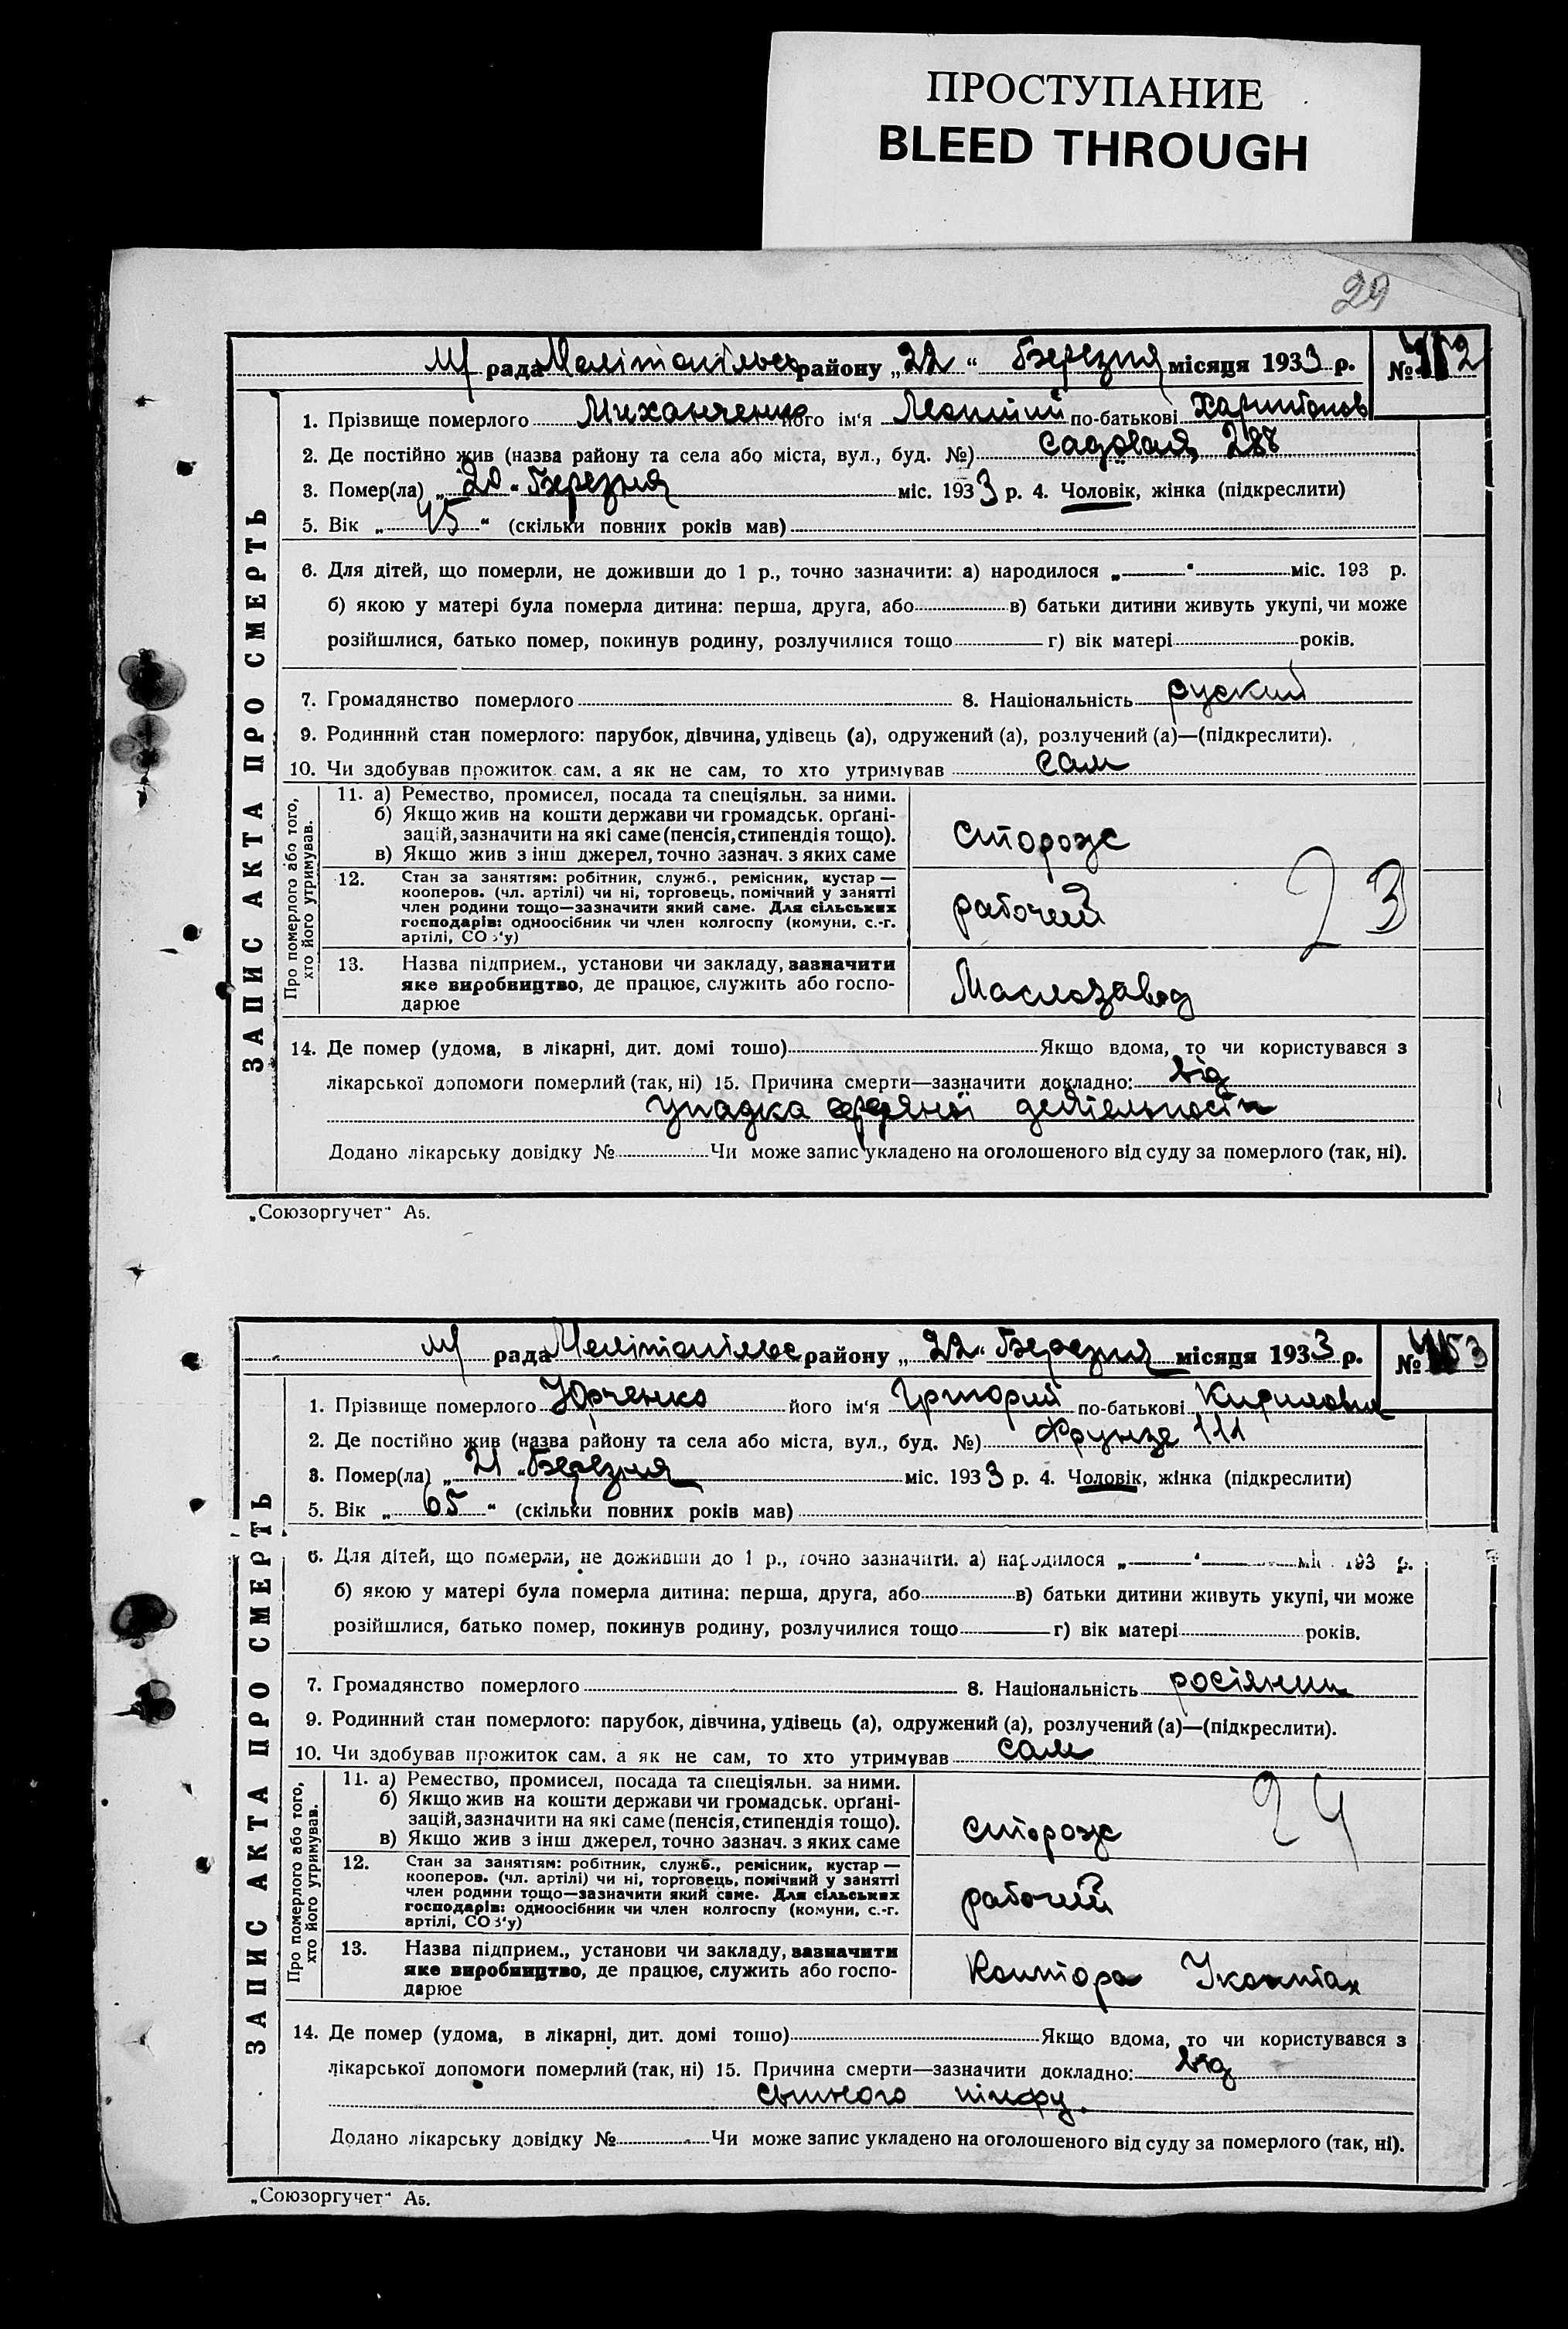 ПРОСТУПАНИЕ
BLEED THROUGH
29
М рада Мелітопільск району „22“ Березня місяця 1933 р. №
1. Прізвище померлого його ім'я по-батькові Харитонов
2. Де постійно жив (назва району та села або міста, вул., буд. №) Садовая, 288
3. Помер(ла) „20“ Березня міс. 1933 р. 4. Чоловік, жінка (підкреслити)
5. Вік „45“ (скільки повних років мав)
6. Для дітей, що померли, не доживши до 1 р., точно зазначити: а) народилося „ “ міс. 193 р.
б) якою у матері була померла дитина: перша, друга, або в) батьки дитини живуть укупі, чи може
розійшлися, батько помер, покинув родину, розлучилися тощо г) вік матері років.
7. Громадянство померлого 8. Національність руский
9. Родинний стан померлого: парубок, дівчина, удівець (а), одружений (а), розлучений (а)—(підкреслити).
10. Чи здобував прожиток сам, а як не сам, то хто утримував сам
Про померлого або того,
хто його утримував.
11. а) Ремество, промисел, посада та спеціяльн. за ними.
б) Якщо жив на кошти держави чи громадськ. орґані-
зацій, зазначити на які саме (пенсія, стипендія тощо).
в) Якщо жив з інш джерел, точно зазнач. з яких саме
Сторож
12. Стан за заняттям: робітник, служб., ремісник, кустар —
кооперов. (чл. артілі) чи ні, торговець, помічний у занятті
член родини тощо—зазначити який саме. Для сільських
господарів: одноосібник чи член колгоспу (комуни, с.-г.
артілі, СОЗ'у)
рабочий
23
13. Назва підприєм., установи чи закладу, зазначити
яке виробництво, де працює, служить або госпо-
дарює
Маслозавод
14. Де помер (удома, в лікарні, дит. домі тошо) Якщо вдома, то чи користувався з
лікарської допомоги померлий (так, ні) 15. Причина смерти—зазначити докладно: від
упадка сердяної деятельности
Додано лікарську довідку № Чи може запис укладено на оголошеного від суду за померлого (так, ні).
ЗАПИС АКТА ПРО СМЕРТЬ
„Союзоргучет“ А5.
М рада Мелітопільс району „22“ Березня місяця 1933 р. №
1. Прізвище померлого Юрченко його ім'я Григорий по-батькові Кирилович
2. Де постійно жив (назва району та села або міста, вул., буд. №) Фрунзе 111
3. Помер(ла) „21“ Березня міс. 1933 р. 4. Чоловік, жінка (підкреслити)
5. Вік „65“ (скільки повних років мав)
6. Для дітей, що померли, не доживши до 1 р., точно зазначити. а) народилося „ “ міс. 193 р.
б) якою у матері була померла дитина: перша, друга, або в) батьки дитини живуть укупі, чи може
розійшлися, батько помер, покинув родину, розлучилися тощо г) вік матері років.
7. Громадянство померлого 8. Національність росіянин
9. Родинний стан померлого: парубок, дівчина, удівець (а), одружений (а), розлучений (а)—(підкреслити).
10. Чи здобував прожиток сам, а як не сам, то хто утримував сам
Про померлого або того,
хто його утримував.
11. а) Ремество, промисел, посада та спеціяльн. за ними.
б) Якщо жив на кошти держави чи громадськ. орґані-
зацій, зазначити на які саме (пенсія, стипендія тощо).
в) Якщо жив з інш джерел, точно зазнач. з яких саме
сторож
24
12. Стан за заняттям: робітник, служб., ремісник, кустар —
кооперов. (чл. артілі) чи ні, торговець, помічний у занятті
член родини тощо—зазначити який саме. Для сільських
господарів: одноосібник чи член колгоспу (комуни, с.-г.
артілі, СОЗ'у)
рабочий
13. Назва підприєм., установи чи закладу, зазначити
яке виробництво, де працює, служить або госпо-
дарює
Контора
14. Де помер (удома, в лікарні, дит. домі тошо) Якщо вдома, то чи користувався з
лікарської допомоги померлий (так, ні) 15. Причина смерти—зазначити докладно: від
сыпного тифу.
Додано лікарську довідку № Чи може запис укладено на оголошеного від суду за померлого (так, ні).
ЗАПИС АКТА ПРО СМЕРТЬ
„Союзоргучет“ А5.